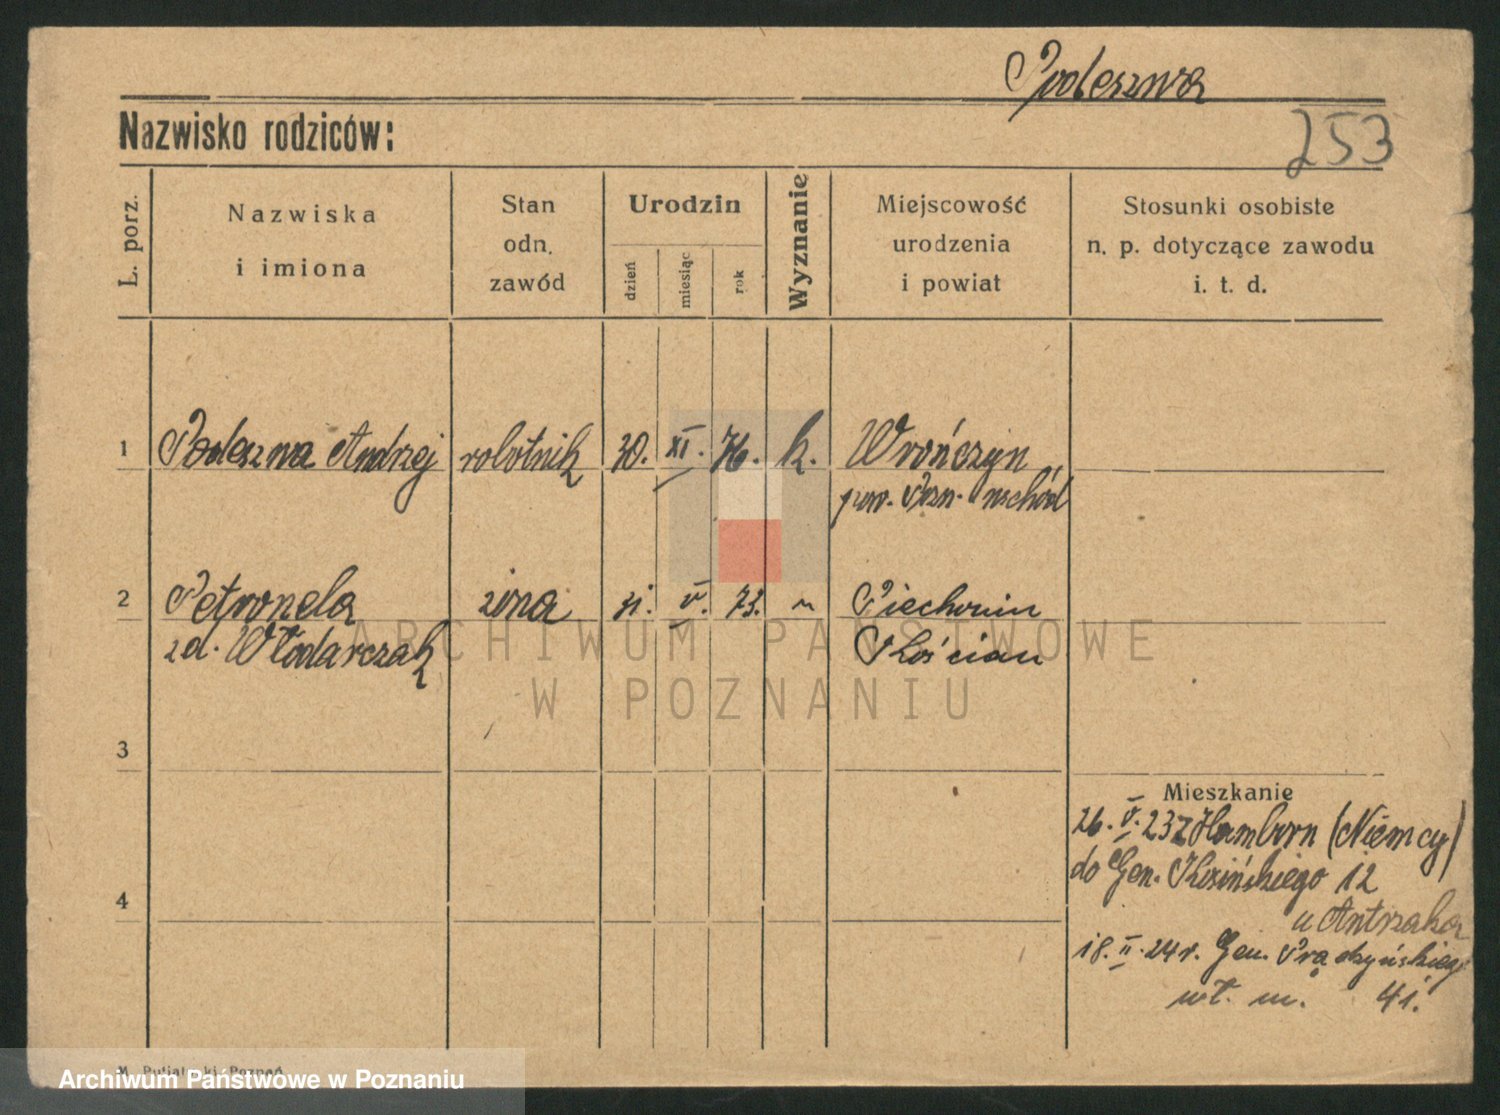 Podeszwa
Nazwisko rodziców:
253
L. porz.
Nazwiska
i imiona
Stan
odn.
zawód
Urodzin
dzień
miesiąc
rok
Wyznanie
Miejscowość
urodzenia
i powiat
Stosunki osobiste
n. p. dotyczące zawodu
i. t. d.
1 Podeszwa Andrzej robotnik 30. XI. 76. k. Wrończyn
pow. Pozn. wschód
2 Petronela żona 31. V. 73. " Piechanin
zd. Włodarczak Kościan
ARCHIWUM PAŃSTWOWE
W POZNANIU
3
Mieszkanie
26. V. 23 z Hamborn (Niemcy)
do Gen. Kosińskiego 12
4
u Antrzaka
18. II. 24 r. Gen. Prądzyńskiego
wł. m. 41.
Archiwum Państwowe w Poznaniu